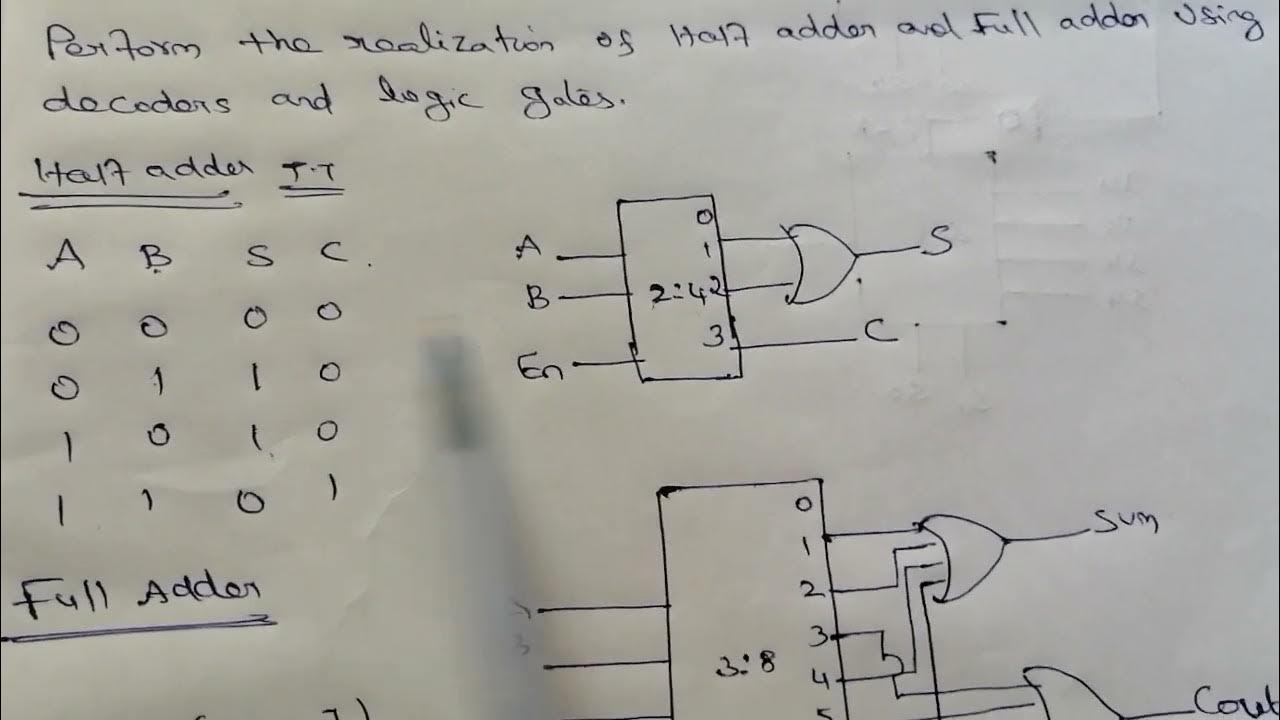 Perform the realization of Half adder and Full adder using
decoders and logic gates.
Half adder T.T
A B S C
0 0 0 0
0 1 1 0
1 0 1 0
1 1 0 1
A
B
En
2:4
0
1
2
3
S
C
Full Adder
3:8
0
1
2
3
4
5
Sum
Cout